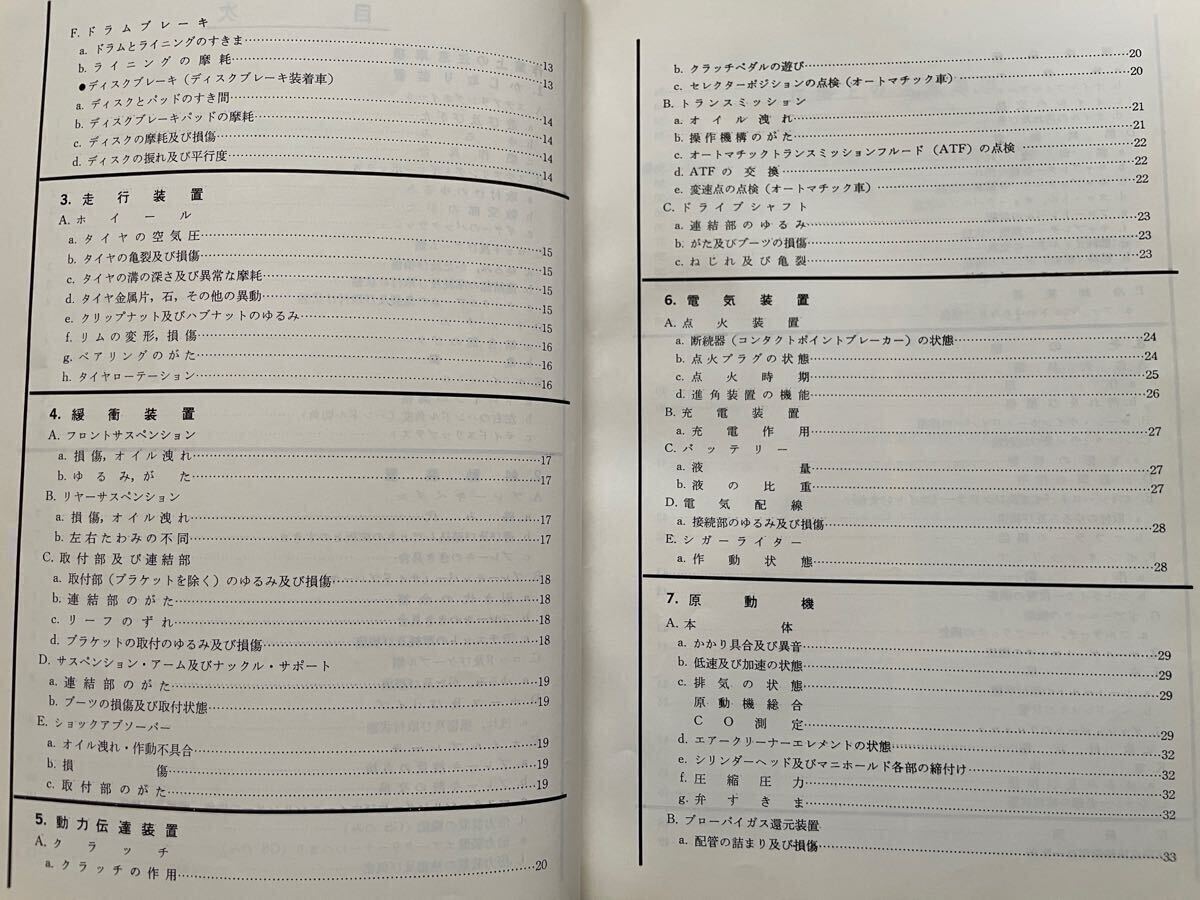 F. ドラムブレーキ
a. ドラムとライニングのすきま……13
b. ライニングの摩耗……13
●ディスクブレーキ(ディスクブレーキ装着車)
a. ディスクとパッドのすき間……14
b. ディスクブレーキパッドの摩耗……14
c. ディスクの摩耗及び損傷……14
d. ディスクの振れ及び平行度……14
3. 走行装置
A. ホイール
a. タイヤの空気圧……15
b. タイヤの亀裂及び損傷……15
c. タイヤの溝の深さ及び異常な摩耗……15
d. タイヤ金属片,石,その他の異動……15
e. クリップナット及びハブナットのゆるみ……15
f. リムの変形,損傷……16
g. ベアリングのがた……16
h. タイヤローテーション……16
4. 緩衝装置
A. フロントサスペンション
a. 損傷,オイル洩れ……17
b. ゆるみ,がた……17
B. リヤーサスペンション
a. 損傷,オイル洩れ……17
b. 左右たわみの不同……17
C. 取付部及び連結部
a. 取付部(ブラケットを除く)のゆるみ及び損傷……18
b. 連結部のがた……18
c. リーフのずれ……18
d. ブラケットの取付のゆるみ及び損傷……18
D. サスペンション・アーム及びナックル・サポート
a. 連結部のがた……19
b. ブーツの損傷及び取付状態……19
E. ショックアブソーバー
a. オイル洩れ・作動不具合……19
b. 損傷……19
c. 取付部のがた……19
5. 動力伝達装置
A. クラッチ
a. クラッチの作用……20
b. クラッチペダルの遊び……20
c. セレクターポジションの点検(オートマチック車)……20
B. トランスミッション
a. オイル洩れ……21
b. 操作機構のがた……21
c. オートマチックトランスミッションフルード(ATF)の点検……22
d. ATFの交換……22
e. 変速点の点検(オートマチック車)……22
C. ドライブシャフト
a. 連結部のゆるみ……23
b. がた及びブーツの損傷……23
c. ねじれ及び亀裂……23
6. 電気装置
A. 点火装置
a. 断続器(コンタクトポイントブレーカー)の状態……24
b. 点火プラグの状態……24
c. 点火時期……25
d. 進角装置の機能……26
B. 充電装置
a. 充電作用……27
C. バッテリー
a. 液量……27
b. 液の比重……27
D. 電気配線
a. 接続部のゆるみ及び損傷……28
E. シガーライター
a. 作動状態……28
7. 原動機
A. 本体
a. かかり具合及び異音……29
b. 低速及び加速の状態……29
c. 排気の状態……29
原動機総合
CO測定……29
d. エアークリーナーエレメントの状態……32
e. シリンダーヘッド及びマニホールド各部の締付け……32
f. 圧縮圧力……32
g. 弁すきま……32
B. ブローバイガス還元装置
a. 配管の詰まり及び損傷……33